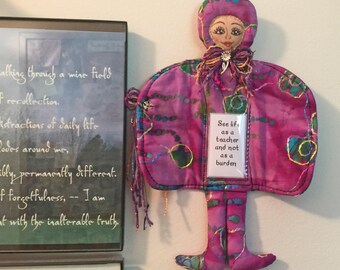 alking through a mine field
of recollection.
istractions of daily life
odes around me,
ibly, permanently different.
of forgetfulness, -- I am
t with the inalterable truth.
See life
as a
teacher
and not
as a
burden